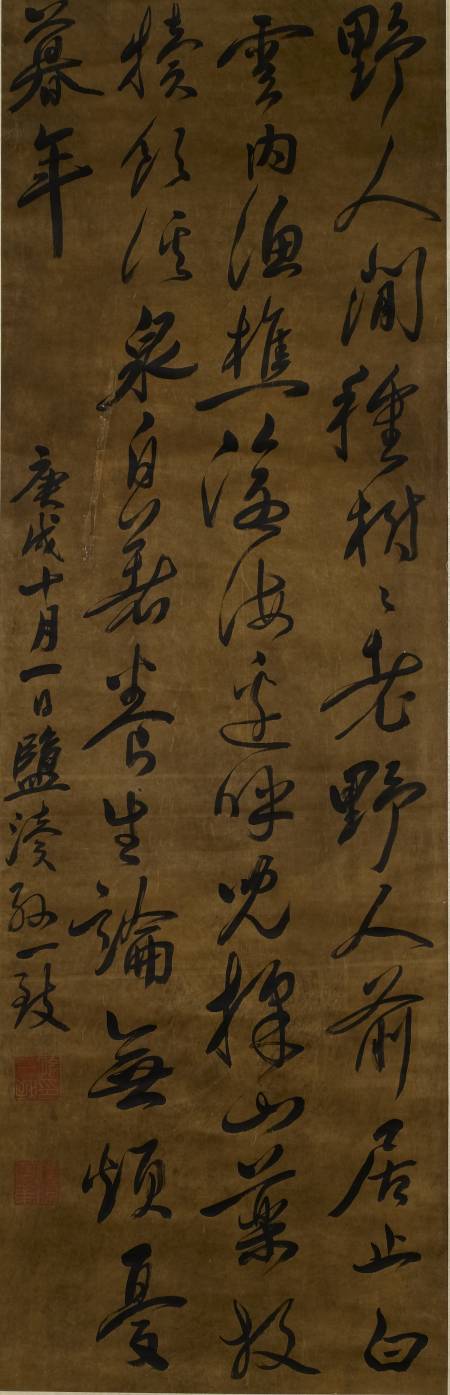 野人閒種樹〻老野人前居止白
雲內漁樵滄海邊呼兒採山藥放
犢飲溪泉自著養生論無煩憂
暮年
庚戌十月一日鹽瀆孫一致